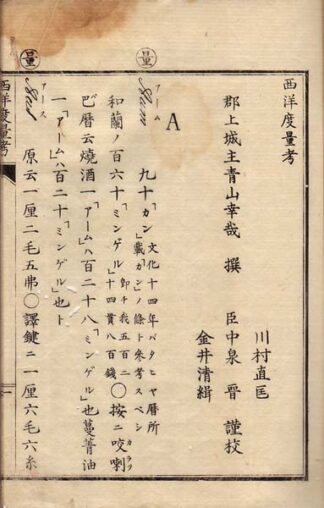 西洋度量考
郡上城主青山幸哉 撰 臣中泉 晉 謹校
川村直匡
金井清緝
A
量
アーム
Aam
九十「カン」文化十四年バタヒヤ暦所
載「カン」ノ條ト朱考スペシ
和蘭ノ百六十「ミンゲル」卽チ我五百二
十四貫八百錢
〇按ニ咬𠺕
カラツ
巴暦云燒酒一「アーム」ハ百二十八「ミンゲル」也蔓菁油
一「アーム」ハ百二十「ミンゲル」也ト
量
アース
原云一厘二毛五弗〇譯鍵ニ一厘六毛六糸
西洋度量考